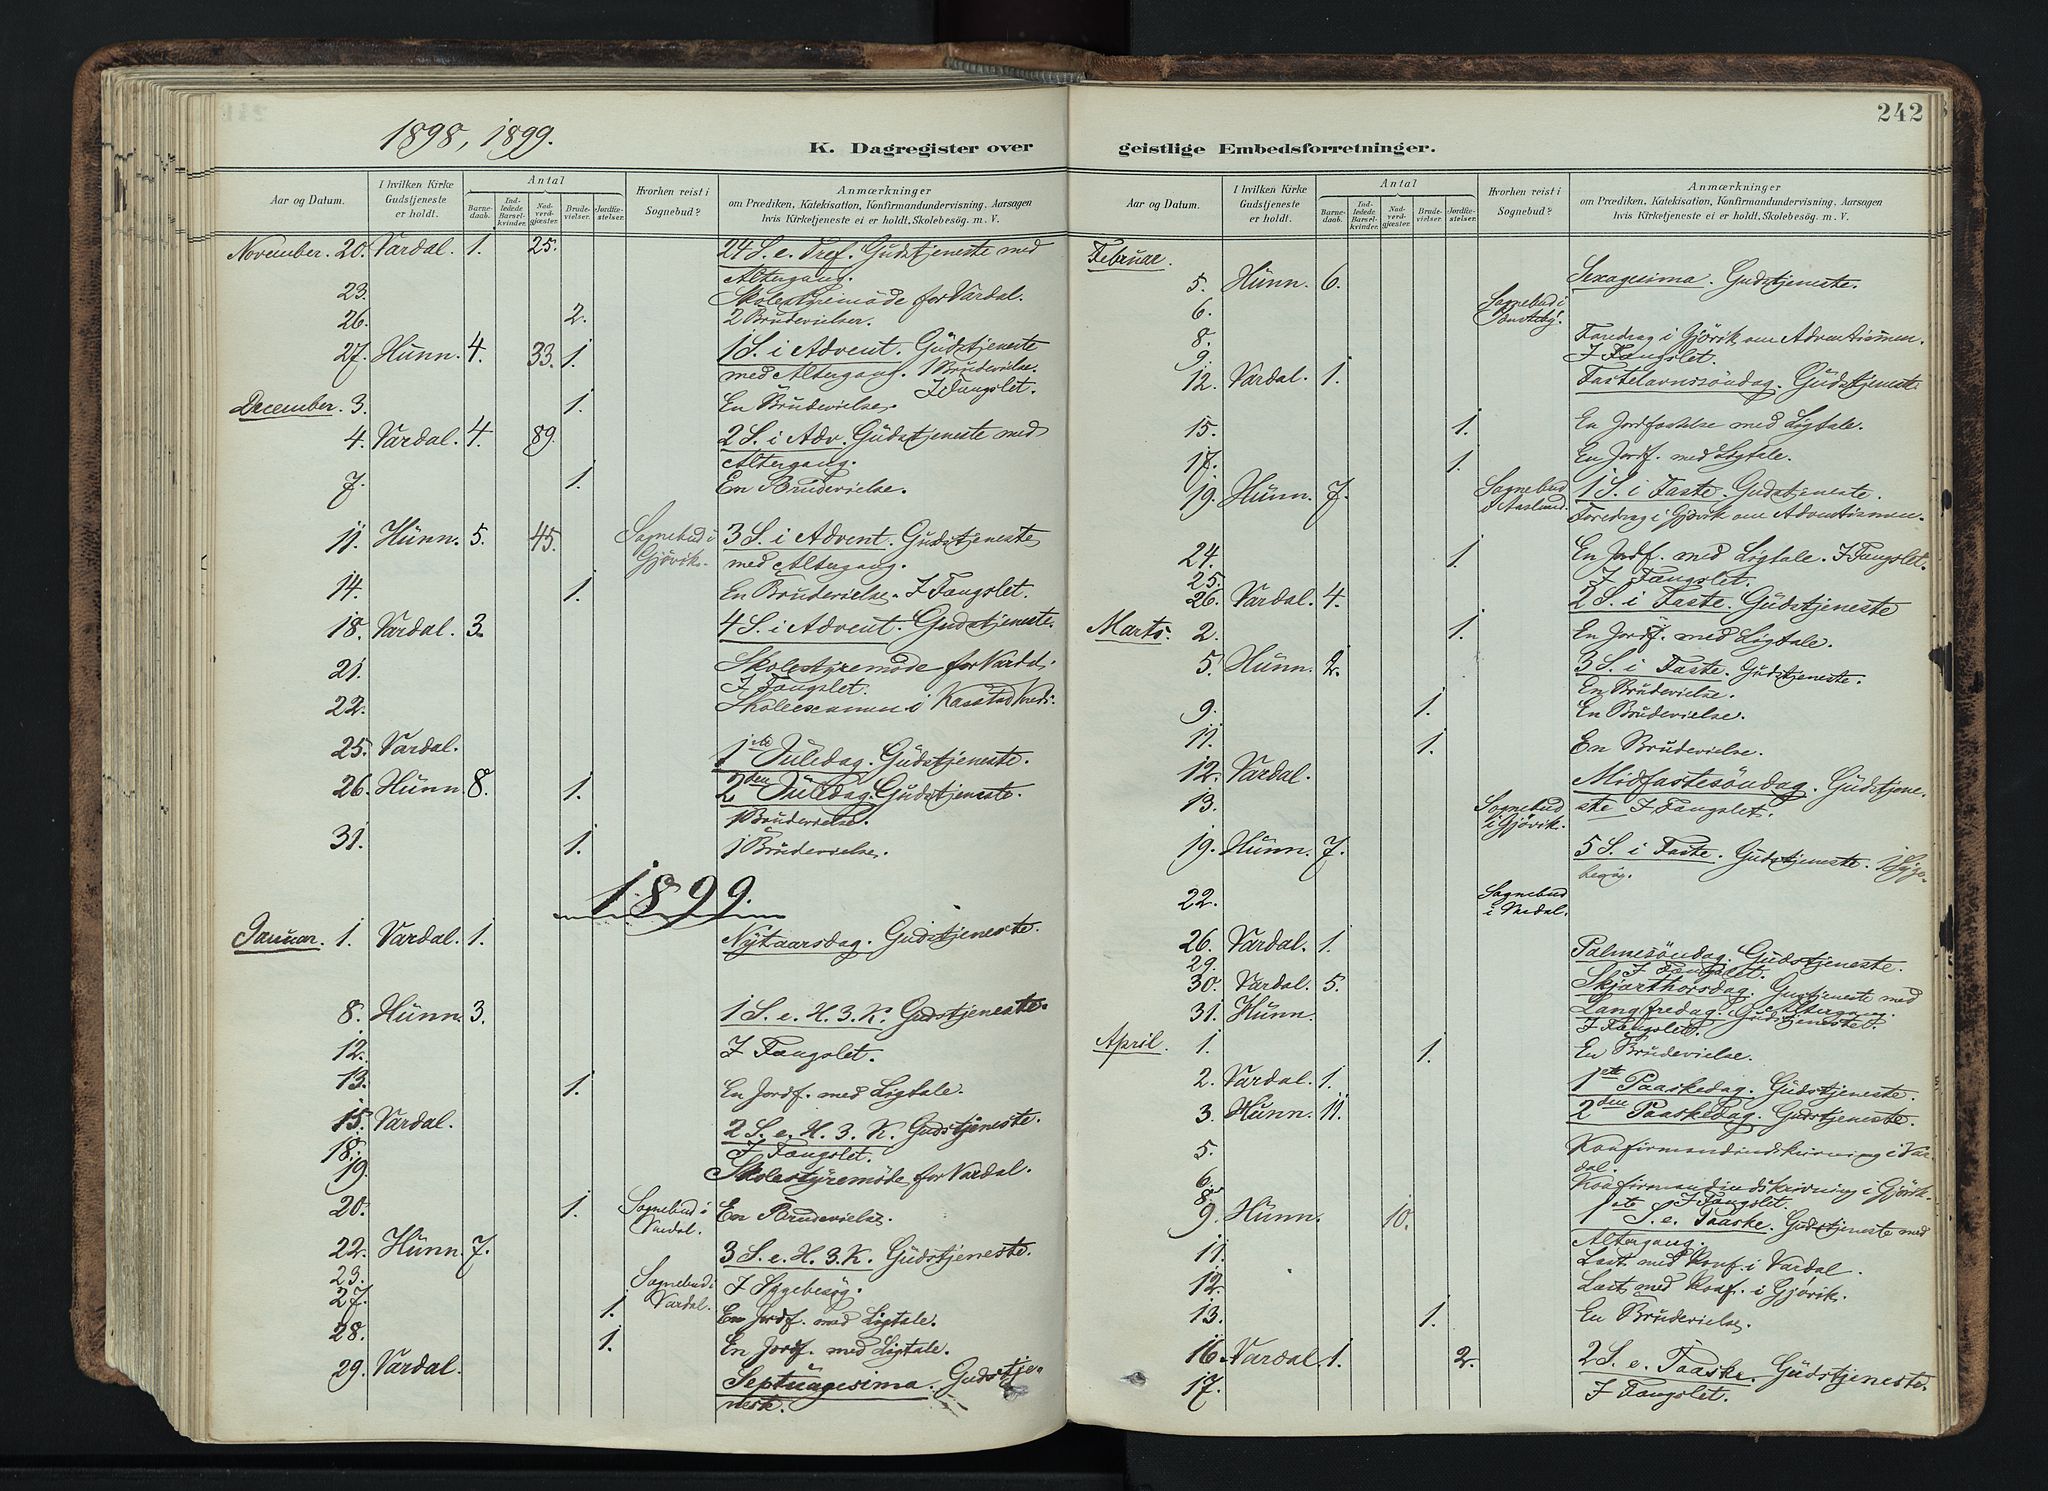 1898, 1899.
K. Dagregister over
Aar og Datum.
I hvilken Kirke Gudstjeneste er holdt.
Antal
Barnedaab.
Indledede Barselkvinder.
Nadverdgjæster.
Brudevielser.
Jordfæstelser.
Hvorhen reist i Sognebud?
Anmærkninger
om Prædiken, Katekisation, Konfirmandundervisning, Aarsagen
hvis Kirketjeneste ei er holdt, Skolebesøg. m. V.
November. 20. Vardal. 1. 25. 24 S. e. Tref. Gudstjeneste med
Altergang.
23. Skolestyremøde for Vardal.
26. 2. 2 Brudevielser.
27. Hunn. 4. 33. 1. 1 S. i Advent. Gudstjeneste
med Altergang. 1 Brudevielse.
I Fængslet.
December. 3. 1. En Brudevielse.
4. Vardal. 4. 89. 2 S. i Adv. Gudstjeneste med
Altergang.
7. 1. En Brudevielse.
11. Hunn. 5. 45. Sognebud i Gjøvik. 3 S. i Advent. Gudstjeneste
med Altergang.
14. 1. En Brudevielse. I Fængslet.
18. Vardal. 3. 4 S. i Advent. Gudstjeneste.
21. Skolestyremøde for Vardal.
I Fængslet.
22. Skoleexamen i Kreds.
25. Vardal. 1ste Juledag. Gudstjeneste.
26. Hunn. 8. 1. 2den Juledag. Gudstjeneste.
1 Brudevielse.
31. 1. 1 Brudevielse.
1899.
Januar. 1. Vardal. 1. Nytaarsdag. Gudstjeneste.
8. Hunn. 3. 1 S. e. H. 3. K. Gudstjeneste.
12. I Fængslet.
13. 1. En Jordf. med Ligtale.
15. Vardal. 2 S. e. H. 3. K. Gudstjeneste.
18. I Fængslet.
19. Skolestyremøde for Vardal.
20. 1. Sognebud i Vardal. En Brudevielse.
22. Hunn. 7. 3 S. e. H. 3. K. Gudstjeneste.
23. Sognebud i Vardal. I Sygebesøg.
27. 1. En Jordf. med Ligtale.
28. 1. En Jordf. med Ligtale.
29. Vardal. Septuagesima. Gudstje-
neste.
242
geistlige Embedsforretninger.
Aar og Datum.
I hvilken Kirke Gudstjeneste er holdt.
Antal
Barnedaab.
Indledede Barselkvinder.
Nadverdgjæster.
Brudevielser.
Jordfæstelser.
Hvorhen reist i Sognebud?
Anmærkninger
om Prædiken, Katekisation, Konfirmandundervisning, Aarsagen
hvis Kirketjeneste ei er holdt, Skolebesøg. m. V.
Februar.
5. Hunn. 6. Sexagesima. Gudstjeneste.
6. Sognebud i
8. Foredrag i Gjøvik om Adventismen.
9. I Fængslet.
12. Vardal. 1. Fastelavnssøndag. Gudstjenest.
15. 1. En Jordfæstelse med Ligtale.
17. 1. En Jordf. med Ligtale.
19. Hunn. 7. Sognebud i Aaslund. 1 S. i Faste. Gudstjeneste.
Foredrag i Gjøvik om Adventismen.
24. 1. En Jordf. med Ligtale. I Fængslet.
25. I Fængslet.
26. Vardal. 4. 2 S. i Faste. Gudstjeneste
Marts. 2. 1. En Jordf. med Ligtale.
5. Hunn. 2. 3 S. i Faste. Gudstjeneste.
En Brudevielse.
9. 1. En Brudevielse.
11. 1. En Brudevielse.
12. Vardal. Midfastesøndag. Gudstjene-
13. Sognebud i Gjøvik. ste I Fængslet.
19. Hunn. 7. 5 S. i Faste. Gudstjeneste. 1 Syge-
besøg.
22. Sognebud i Vardal.
26. Vardal. 1. Palmesøndag. Gudstjeneste.
29. I Fængslet.
30. Vardal. 5. Skjærthorsdag. Gustjeneste med
Altergang.
31. Hunn. Langfredag. Gudstjeneste.
I Fængslet.
April. 1. 1. En Brudevielse.
2. Vardal. 1. 1ste Paaskedag. Gudstjeneste.
3. Hunn. 11. 2den Paaskedag. Gudstjeneste.
5. Konfirmandindskrivning i Var-
dal.
6. Konfirmandindskrivning i Gjøvik.
8. I Fængslet.
9. Hunn. 10. 1ste S. e. Paaske. Gudstjeneste med
Altergang.
11. Læst med Konf. i Vardal.
12. Læst med Konf. i Gjøvik.
13. 1. En Brudevielse.
16. Vardal. 1. 2. 2 S. e. Paaske. Gudstjeneste.
17. I Fængslet.